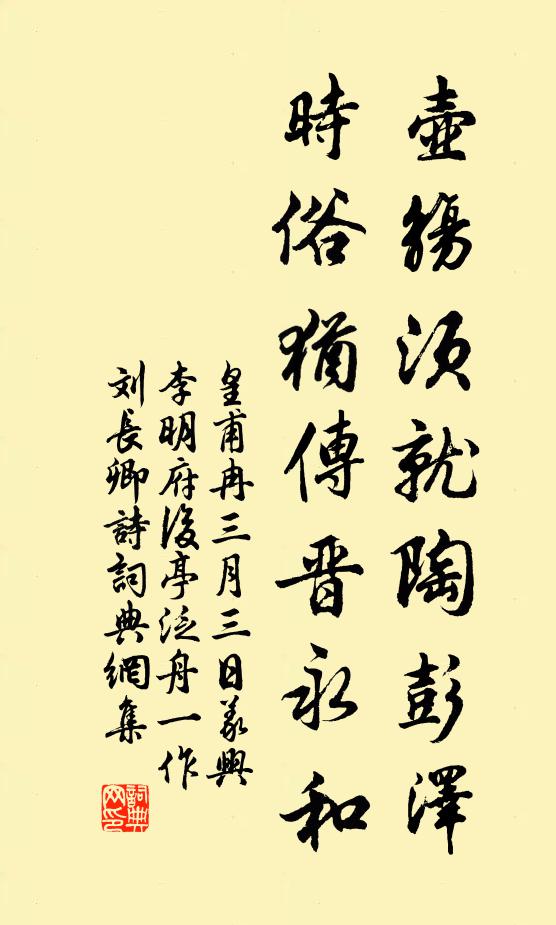 壺觴須就陶彭澤
時俗猶傳晉永和
皇甫冉三月三日義興
李明府後亭泛舟一作
刘長卿詩詞典網集
詞典網印